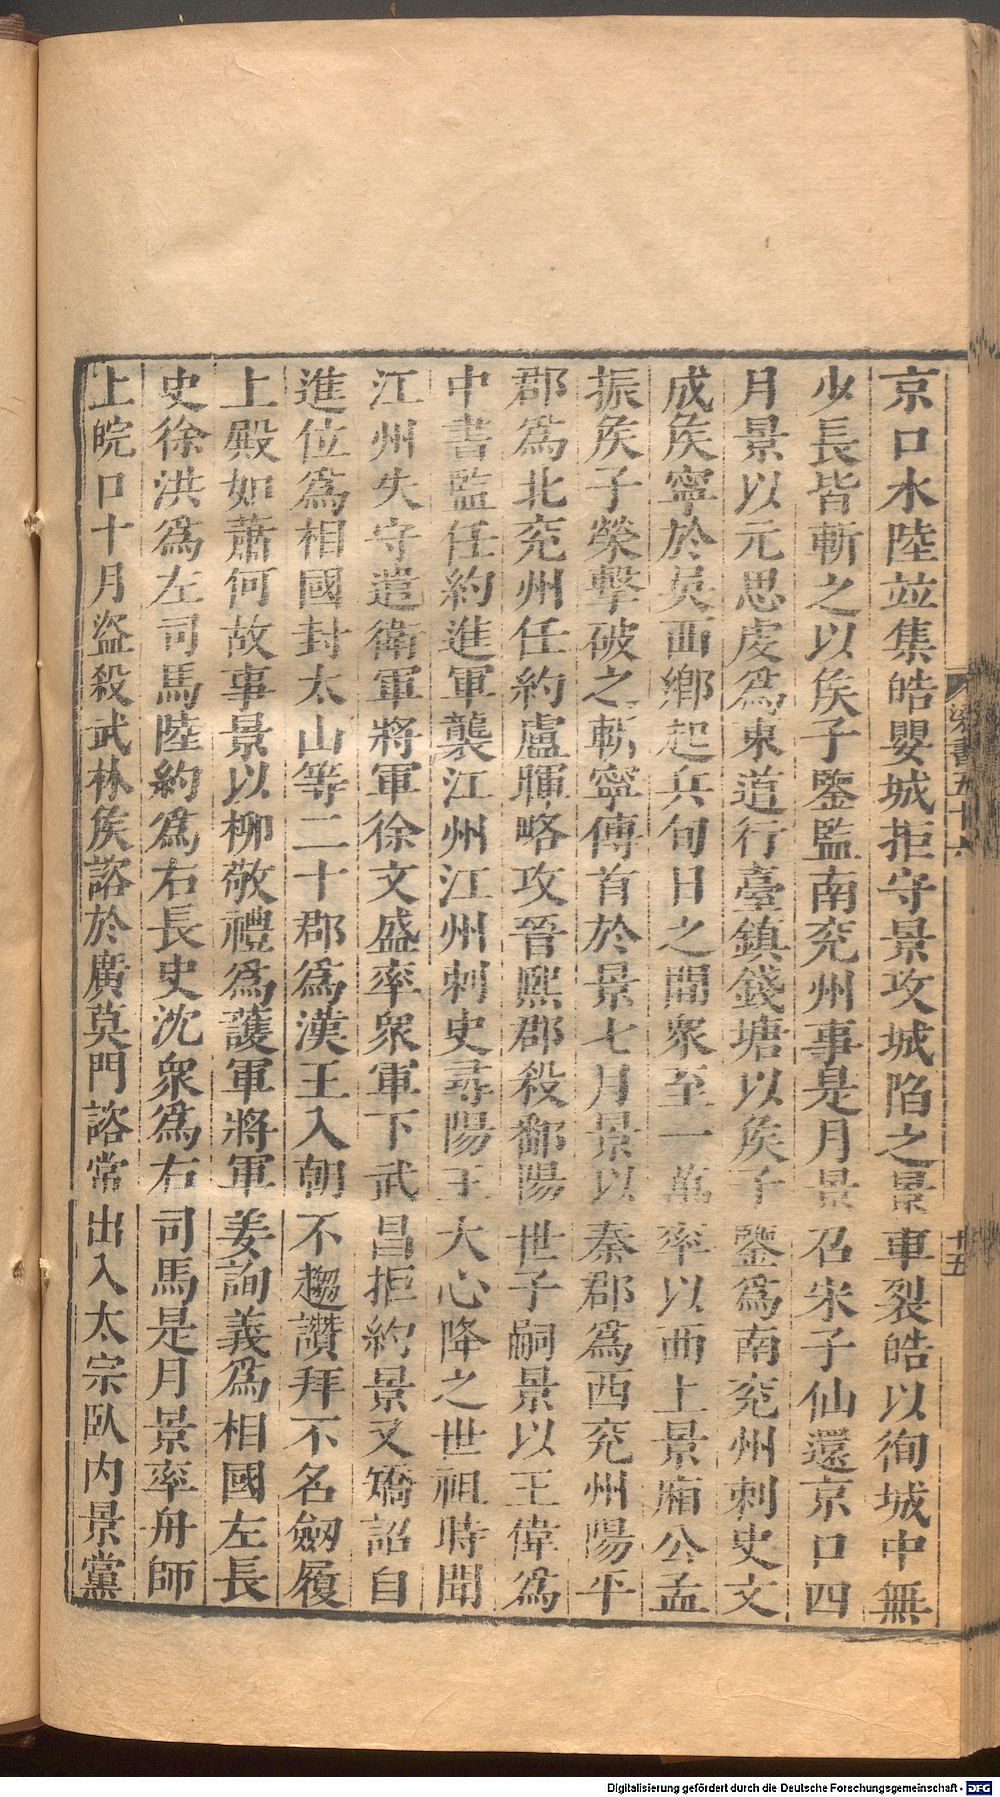 京口水陸竝集皓嬰城拒守景攻城陷之景車裂皓以徇城中無
少長皆斬之以矦子鑒監南兖州事是月景召宋子仙還京口四
月景以元思虔爲東道行臺鎮錢塘以矦子鑒爲南兖州刺史文
成矦寧於吳西鄉起兵旬日之間衆至一萬率以西上景廂公孟
振矦子榮擊破之斬寧傳首於景七月景以秦郡爲西兖州陽平
郡爲北兖州任約盧暉略攻晉熙郡殺鄱陽世子嗣景以王偉爲
中書監任約進軍襲江州江州刺史尋陽王大心降之世祖時聞
江州失守遣衛軍將軍徐文盛率衆軍下武昌拒約景又矯詔自
進位爲相國封太山等二十郡爲漢王入朝不趨讚拜不名劒履
上殿如蕭何故事景以柳敬禮爲護軍將軍姜詢義爲相國左長
史徐洪爲左司馬陸約爲右長史沈衆爲右司馬是月景率舟師
上皖口十月盜殺武林矦諮於廣莫門諮常出入太宗臥内景黨
梁書五十六
廿五
Digitalisierung gefördert durch die Deutsche Forschungsgemeinschaft - DFG